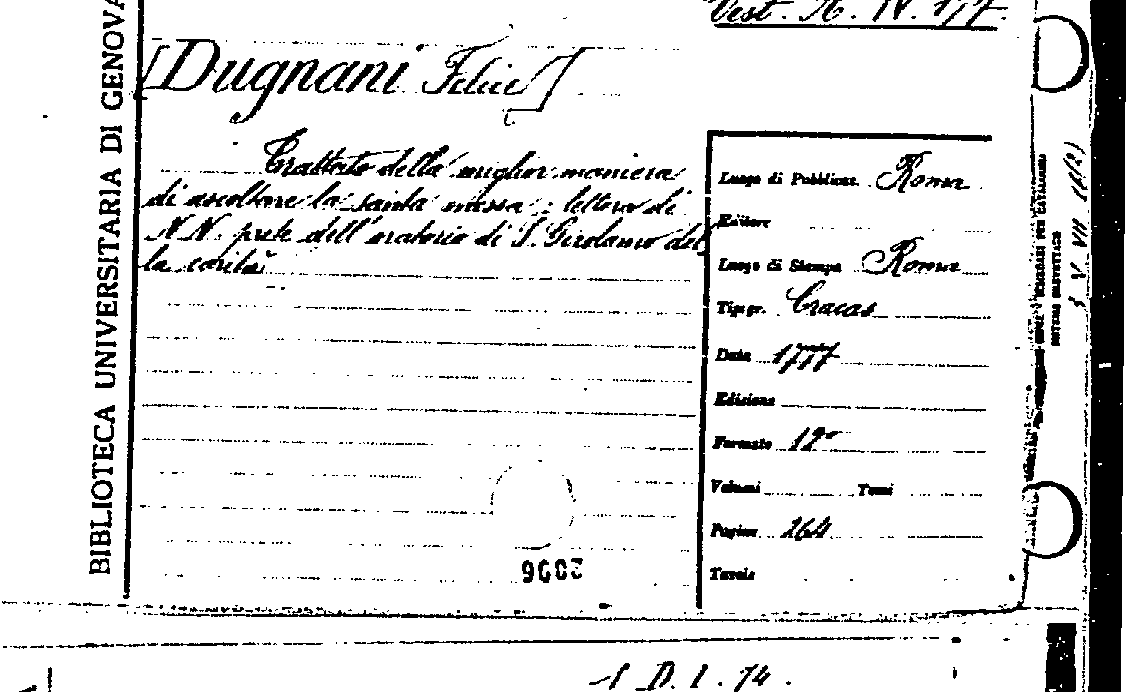 Vest. A. IV. 177.
BIBLIOTECA UNIVERSITARIA DI GENOVA
[Dugnani Felice]
Trattato della miglior maniera
di ascoltare la santa messa: lettera di
N.N. prete dell'oratorio di S. Girolamo del
la carità
Luogo di Pubblicaz. Roma
Editore
Luogo di Stampa Roma
Tipogr. Cracas
Data 1777
Edizione
Formato 12°
Volumi Tomi
Pagine 264
Tavole
2006
1 D. I. 74.